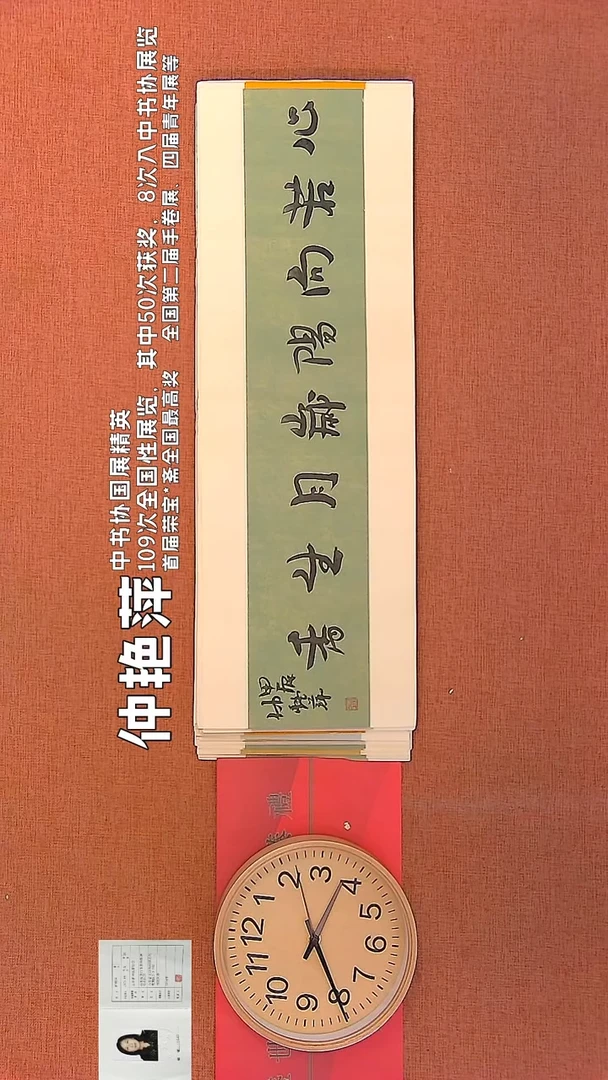 仲艳萍
中书协国展精英
109次全国性展览，其中50次获奖，8次入中书协展览
首届荣宝*斋全国最高奖 全国第二届手卷展、四届青年展等
心若向陽歲月生香
甲辰
仲艷萍
禮
12
1
2
3
4
5
6
7
8
9
10
11